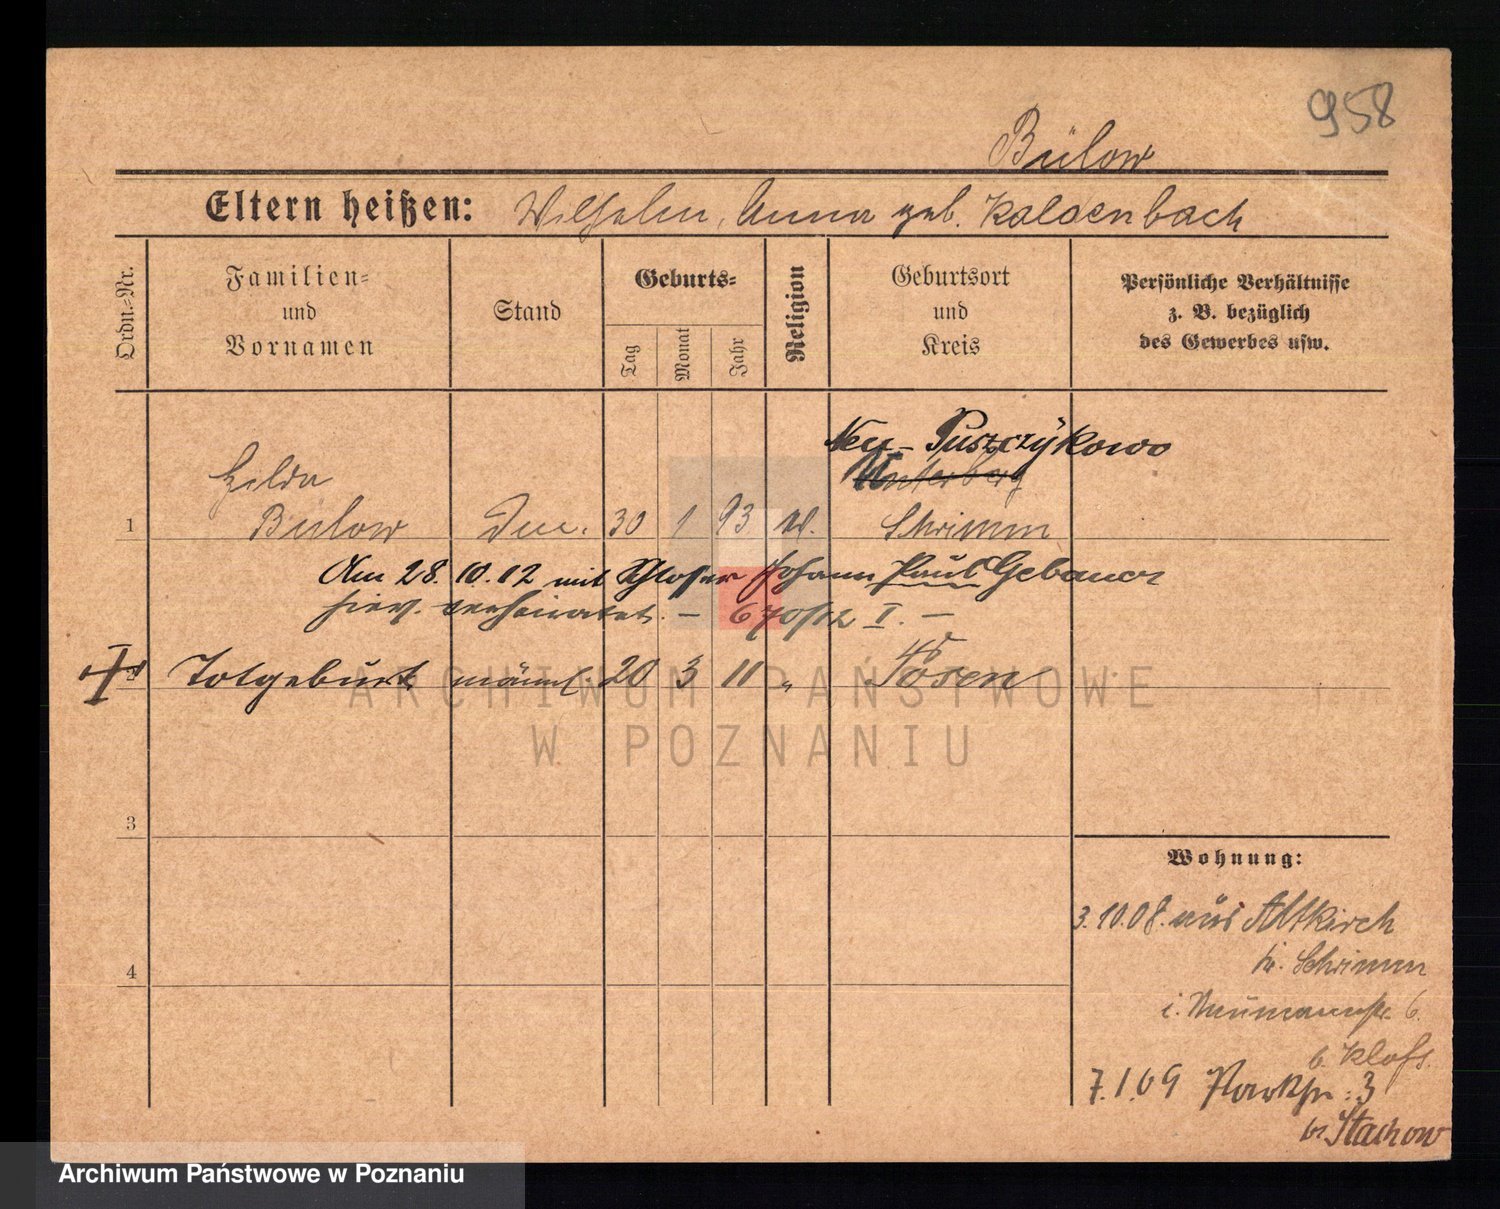 958
Bülow
Eltern heißen: Wilhelm, Anna geb. Kaldenbach
Ordn.-Nr.
Familien- und Vornamen
Stand
Geburts-
Tag
Monat
Jahr
Religion
Geburtsort und Kreis
Persönliche Verhältnisse z. B. bezüglich des Gewerbes usw.
Neu-Puszczykowo
Unterberg
Hilda
1 Bülow 30 1 93 Schrimm
Am 28.10.12 mit Schlosser Johann Paul Gebauer
hier verheiratet. – 670/12 I. –
2 Totgeburt männl. 20 3 11 " Posen
3
4
Wohnung:
3.10.08. aus Altkirch
Kr. Schrimm
i. Naumannstr. 6.
b.
7.1.09 Parkstr. 3
br Stachow
ARCHIWUM PAŃSTWOWE
W POZNANIU
Archiwum Państwowe w Poznaniu